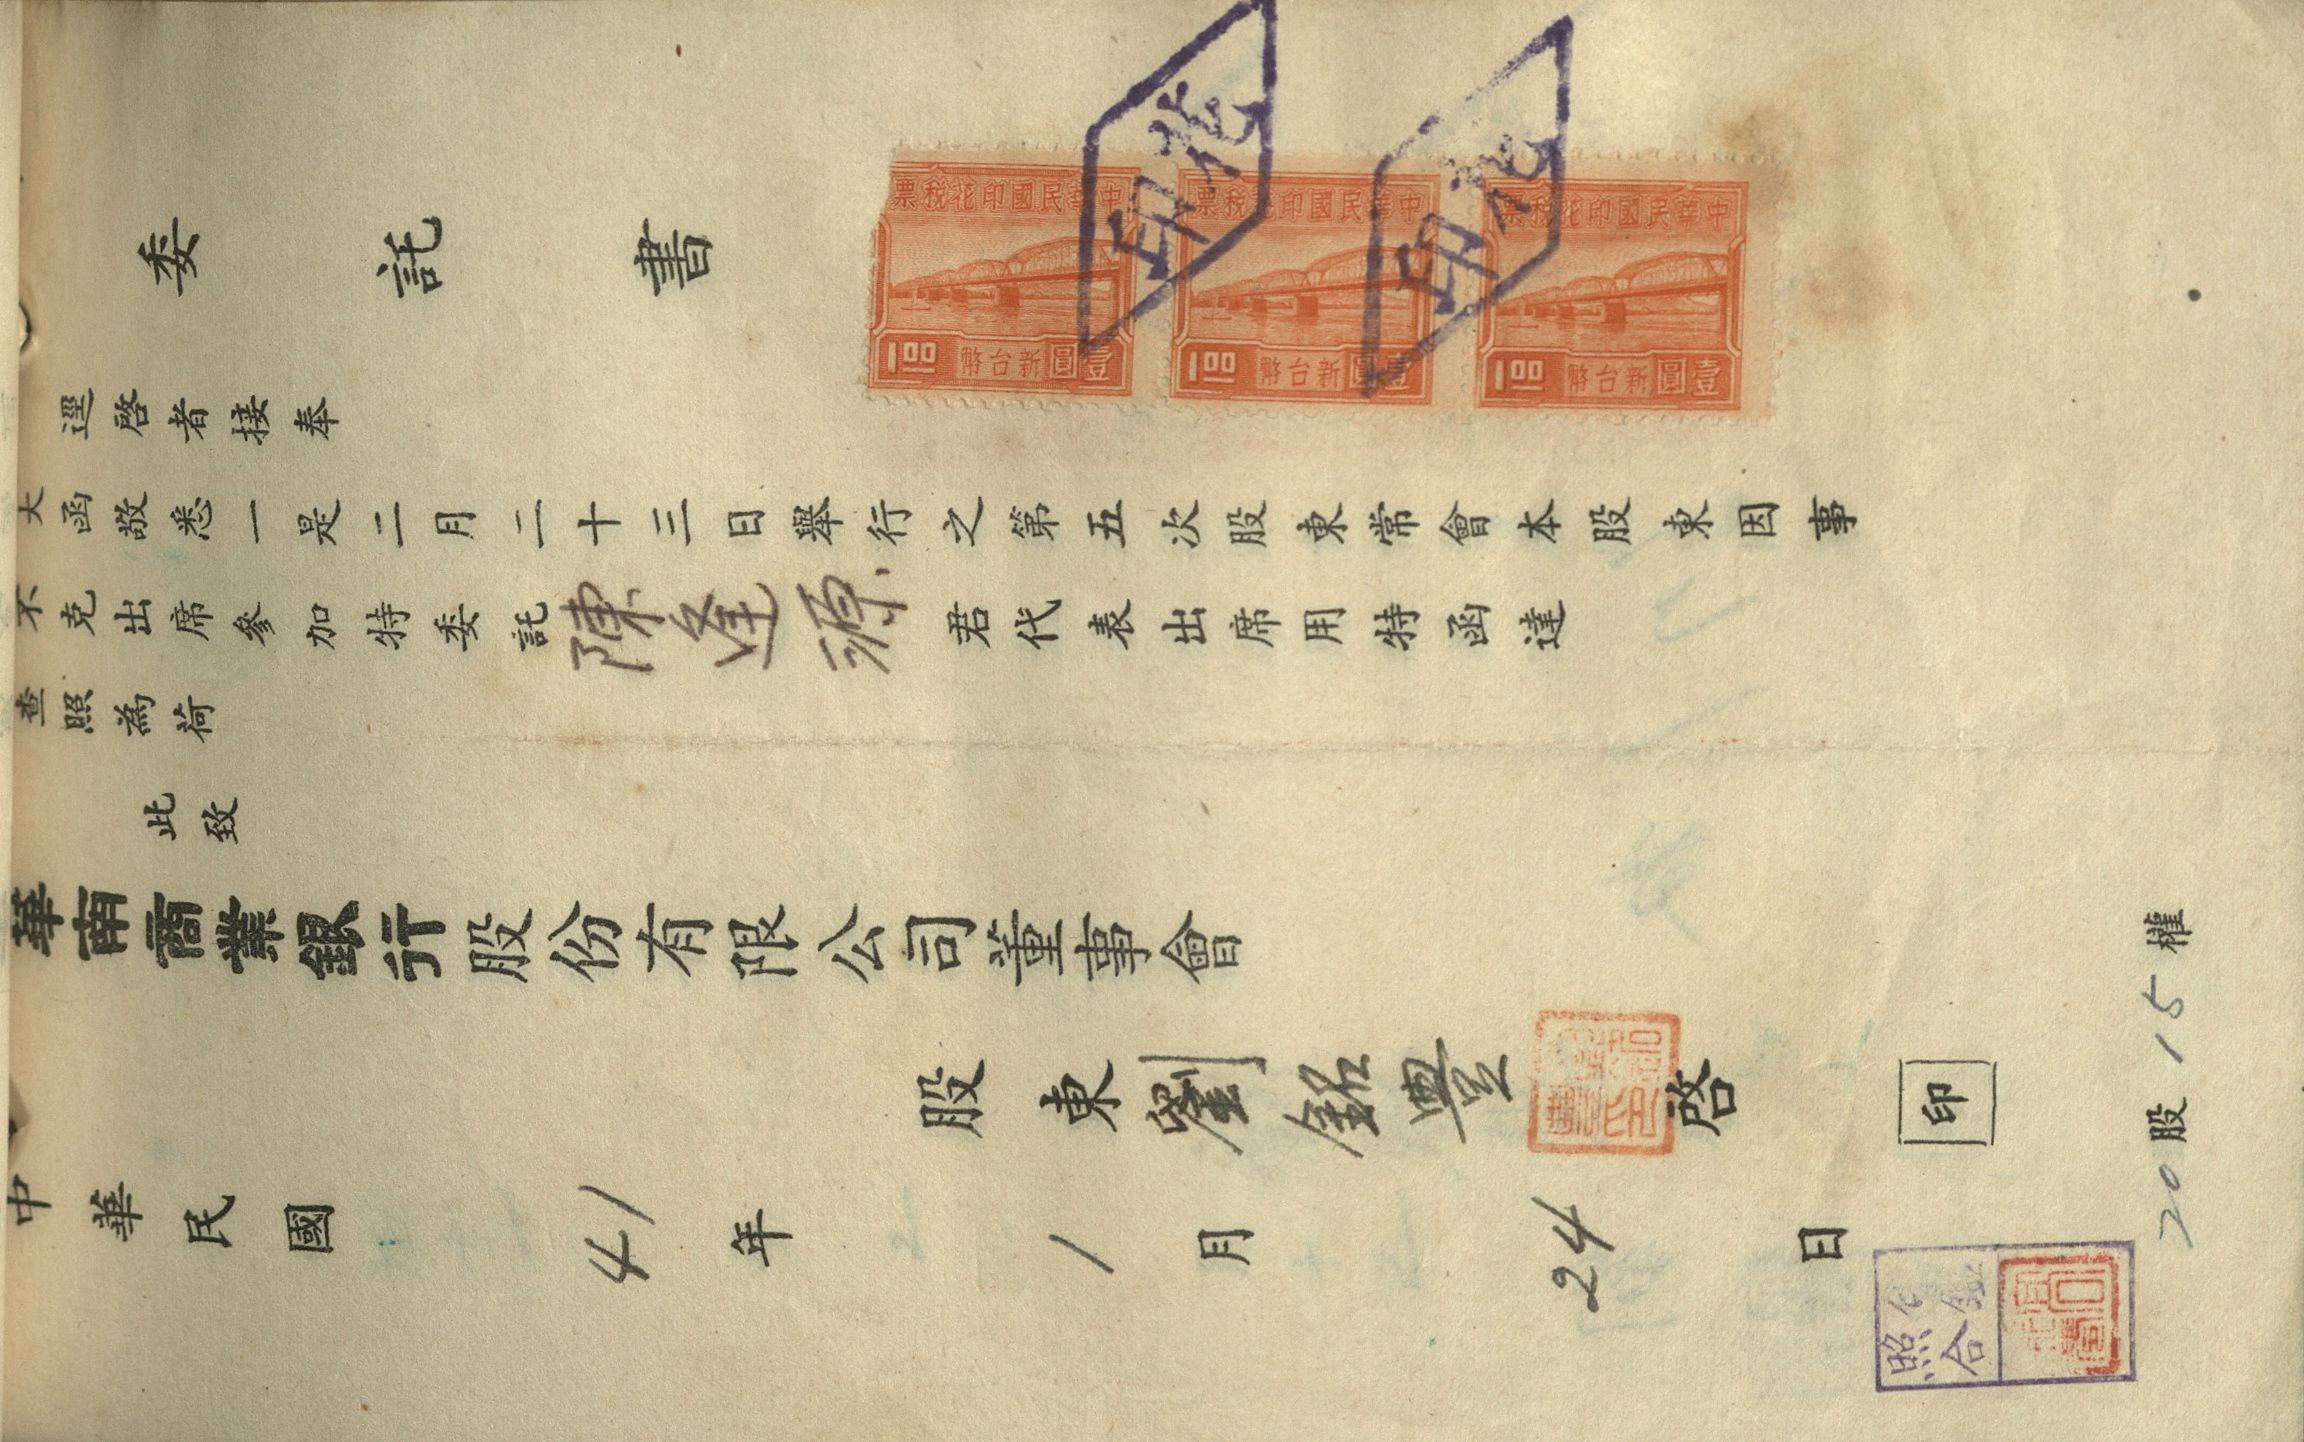 委託書
逕啓者接奉
大函敬悉一是二月二十三日舉行之第五次股東常會本股東因事
不克出席參加特委託陳逢源君代表出席用特函達
查照為荷
此致
華南商業銀行股份有限公司董事會
股東劉銘輿啓
印
中華民國41年1月24日
20股15權
中華民國印花稅票
1.00 新台幣 壹圓
中華民國印花稅票
1.00 新台幣 壹圓
中華民國印花稅票
1.00 新台幣 壹圓
印花
印花
照合